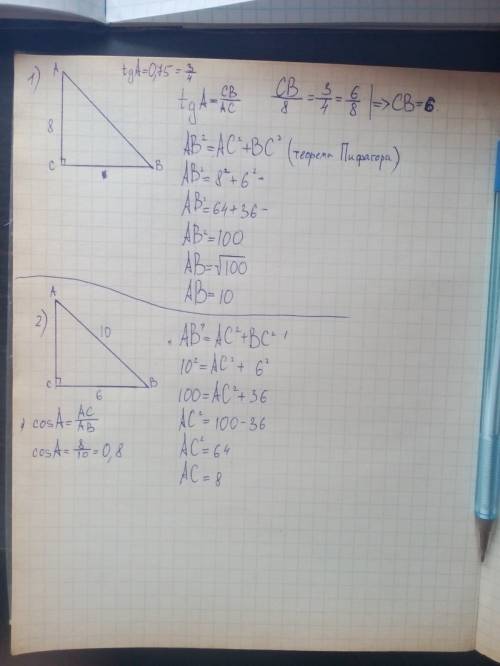 1)
A
8
C
B
tgA=0,75=3/4
tgA=CB/AC CB/8=3/4=6/8 |=>CB=6
AB²=AC²+BC² (теорема Пифагора)
AB²=8²+6²-
AB²=64+36-
AB²=100
AB=√100
AB=10
2)
A
10
C
6
B
cosA=AC/AB
cosA=8/10=0,8
AB²=AC²+BC²
10²=AC²+6²
100=AC²+36
AC²=100-36
AC²=64
AC=8